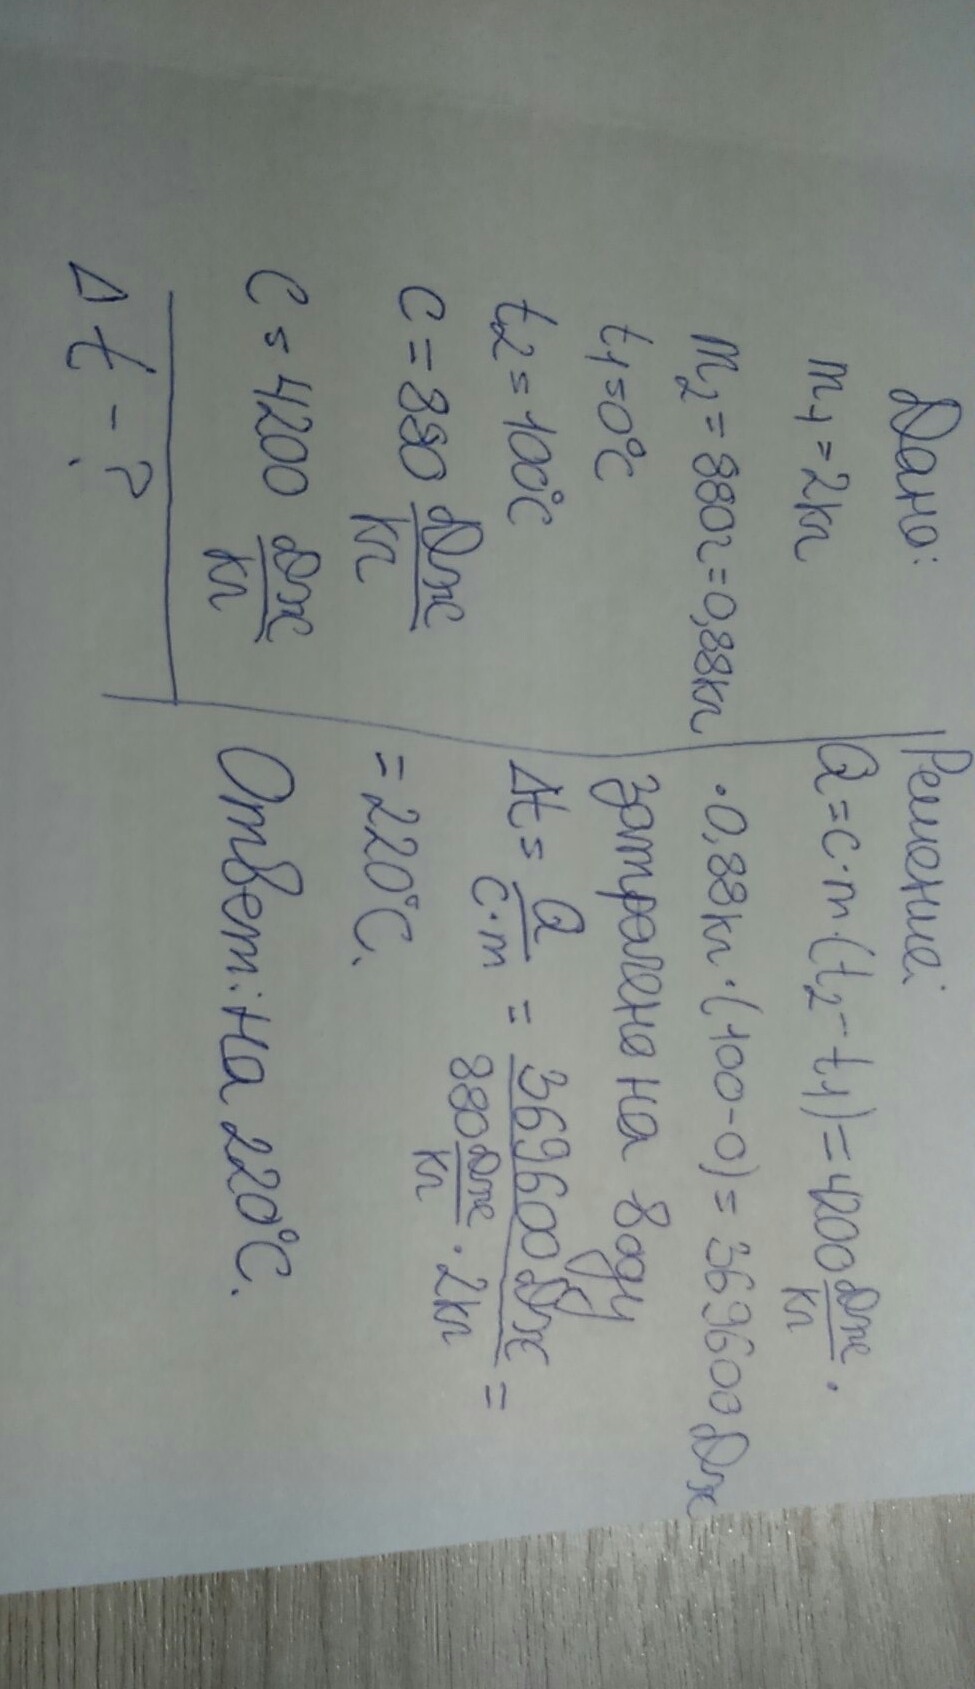 Дано:
m₁ = 2кг
m₂ = 880г = 0,88кг
t₁ = 0°C
t₂ = 100°C
C = 880 Дж/кг
C = 4200 Дж/кг
Δt - ?
Решение:
Q = c·m·(t₂ - t₁) = 4200 Дж/кг ·
·0,88кг·(100-0) = 369600 Дж
затрачено на воду
Δt = Q/c·m = 369600 Дж/880 Дж/кг · 2кг =
= 220°C.
Ответ: на 220°C.